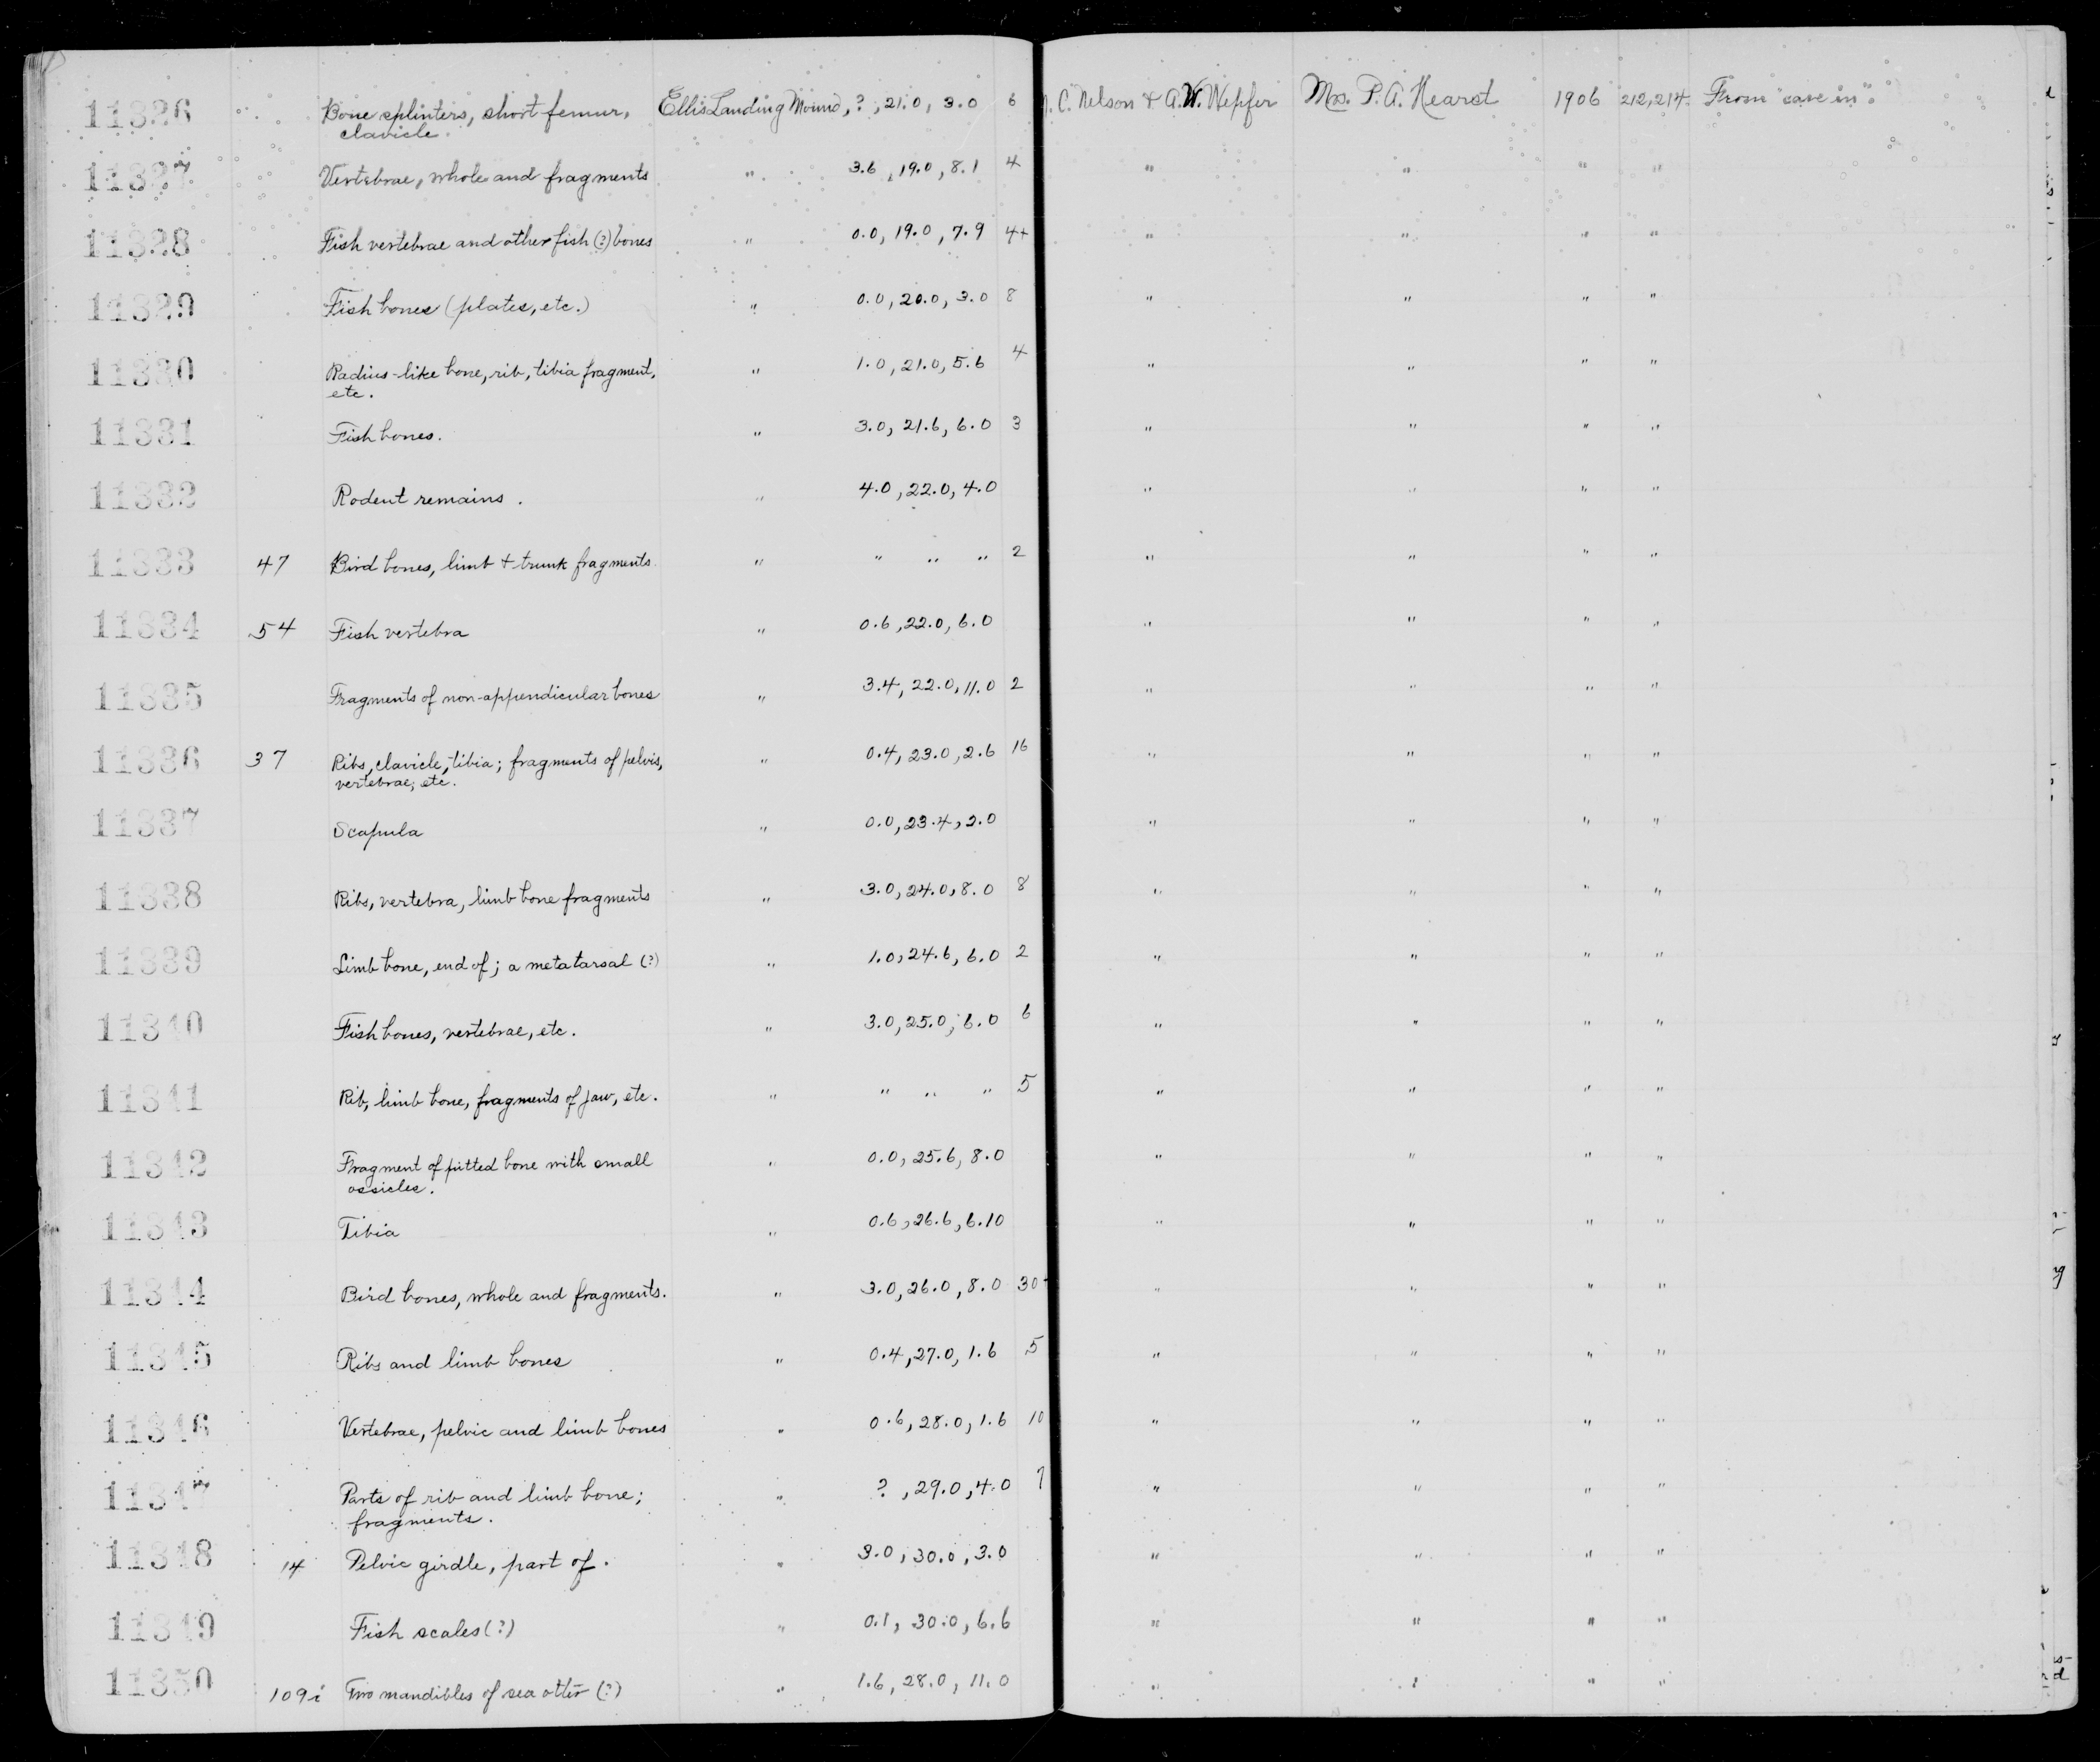 11326 Bone splinters, short femur, Ellis Landing Mound, ?, 21.0, 3.0 6 N. C. Nelson & A. W. Wepfer Mrs. P. A. Hearst 1906 212, 214. From "cave in".
clavicle.
11327 Vertebrae, whole and fragments " 3.6, 19.0, 8.1 4 " " " "
11328 Fish vertebrae and other fish (?) bones " 0.0, 19.0, 7.9 4+ " " " "
11329 Fish bones (plates, etc.) " 0.0, 20.0, 3.0 8 " " " "
11330 Radius-like bone, rib, tibia fragment, " 1.0, 21.0, 5.6 4 " " " "
etc.
11331 Fish bones. " 3.0, 21.6, 6.0 3 " " " "
11332 Rodent remains. " 4.0, 22.0, 4.0 " " " "
11333 47 Bird bones, limb + trunk fragments. " " " " 2 " " " "
11334 54 Fish vertebra " 0.6, 22.0, 6.0 " " " "
11335 Fragments of non-appendicular bones " 3.4, 22.0, 11.0 2 " " " "
11336 37 Ribs, clavicle, tibia; fragments of pelvis, " 0.4, 23.0, 2.6 16 " " " "
vertebrae, etc.
11337 Scapula " 0.0, 23.4, 2.0 " " " "
11338 Ribs, vertebra, limb bone fragments " 3.0, 24.0, 8.0 8 " " " "
11339 Limb bone, end of; a metatarsal (?) " 1.0, 24.6, 6.0 2 " " " "
11340 Fish bones, vertebrae, etc. " 3.0, 25.0, 6.0 6 " " " "
11341 Rib, limb bone, fragments of jaw, etc. " " " " 5 " " " "
11342 Fragment of pitted bone with small " 0.0, 25.6, 8.0 " " " "
ossicles.
11343 Tibia " 0.6, 26.6, 6.10 " " " "
11344 Bird bones, whole and fragments. " 3.0, 26.0, 8.0 30+ " " " "
11345 Ribs and limb bones " 0.4, 27.0, 1.6 5 " " " "
11346 Vertebrae, pelvic and limb bones " 0.6, 28.0, 1.6 10 " " " "
11347 Parts of rib and limb bone; " ?, 29.0, 4.0 7 " " " "
fragments.
11348 14 Pelvic girdle, part of. " 3.0, 30.0, 3.0 " " " "
11349 Fish scales (?) " 0.1, 30.0, 6.6 " " " "
11350 109i Two mandibles of sea otter (?) " 1.6, 28.0, 11.0 " " " "